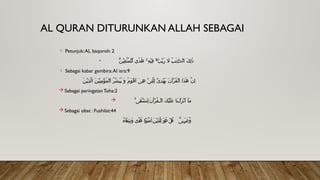 AL QURAN DITURUNKAN ALLAH SEBAGAI
Petunjuk:AL baqoroh: 2
ذَٰلِكَ الْكِتَٰبُ لَا رَيْبَ ۛ فِيهِ ۛ هُدًى لِّلْمُتَّقِينَ
Sebagai kabar gembira:Al isra:9
إِنَّ هَٰذَا الْقُرْآنَ يَهْدِي لِلَّتِي هِيَ أَقْوَمُ وَ يُبَشِّرُ الْمُؤْمِنِينَ الَّذِينَ
Sebagai peringatan Toha:2
مَا أَنزَلْنَا عَلَيْكَ الْقُرْآنَ لِتَشْقَىٰ
Sebagai obat : Fushilat:44
قُلْ هُوَ لِلَّذِينَ آمَنُوا هُدًى وَشِفَاءٌ